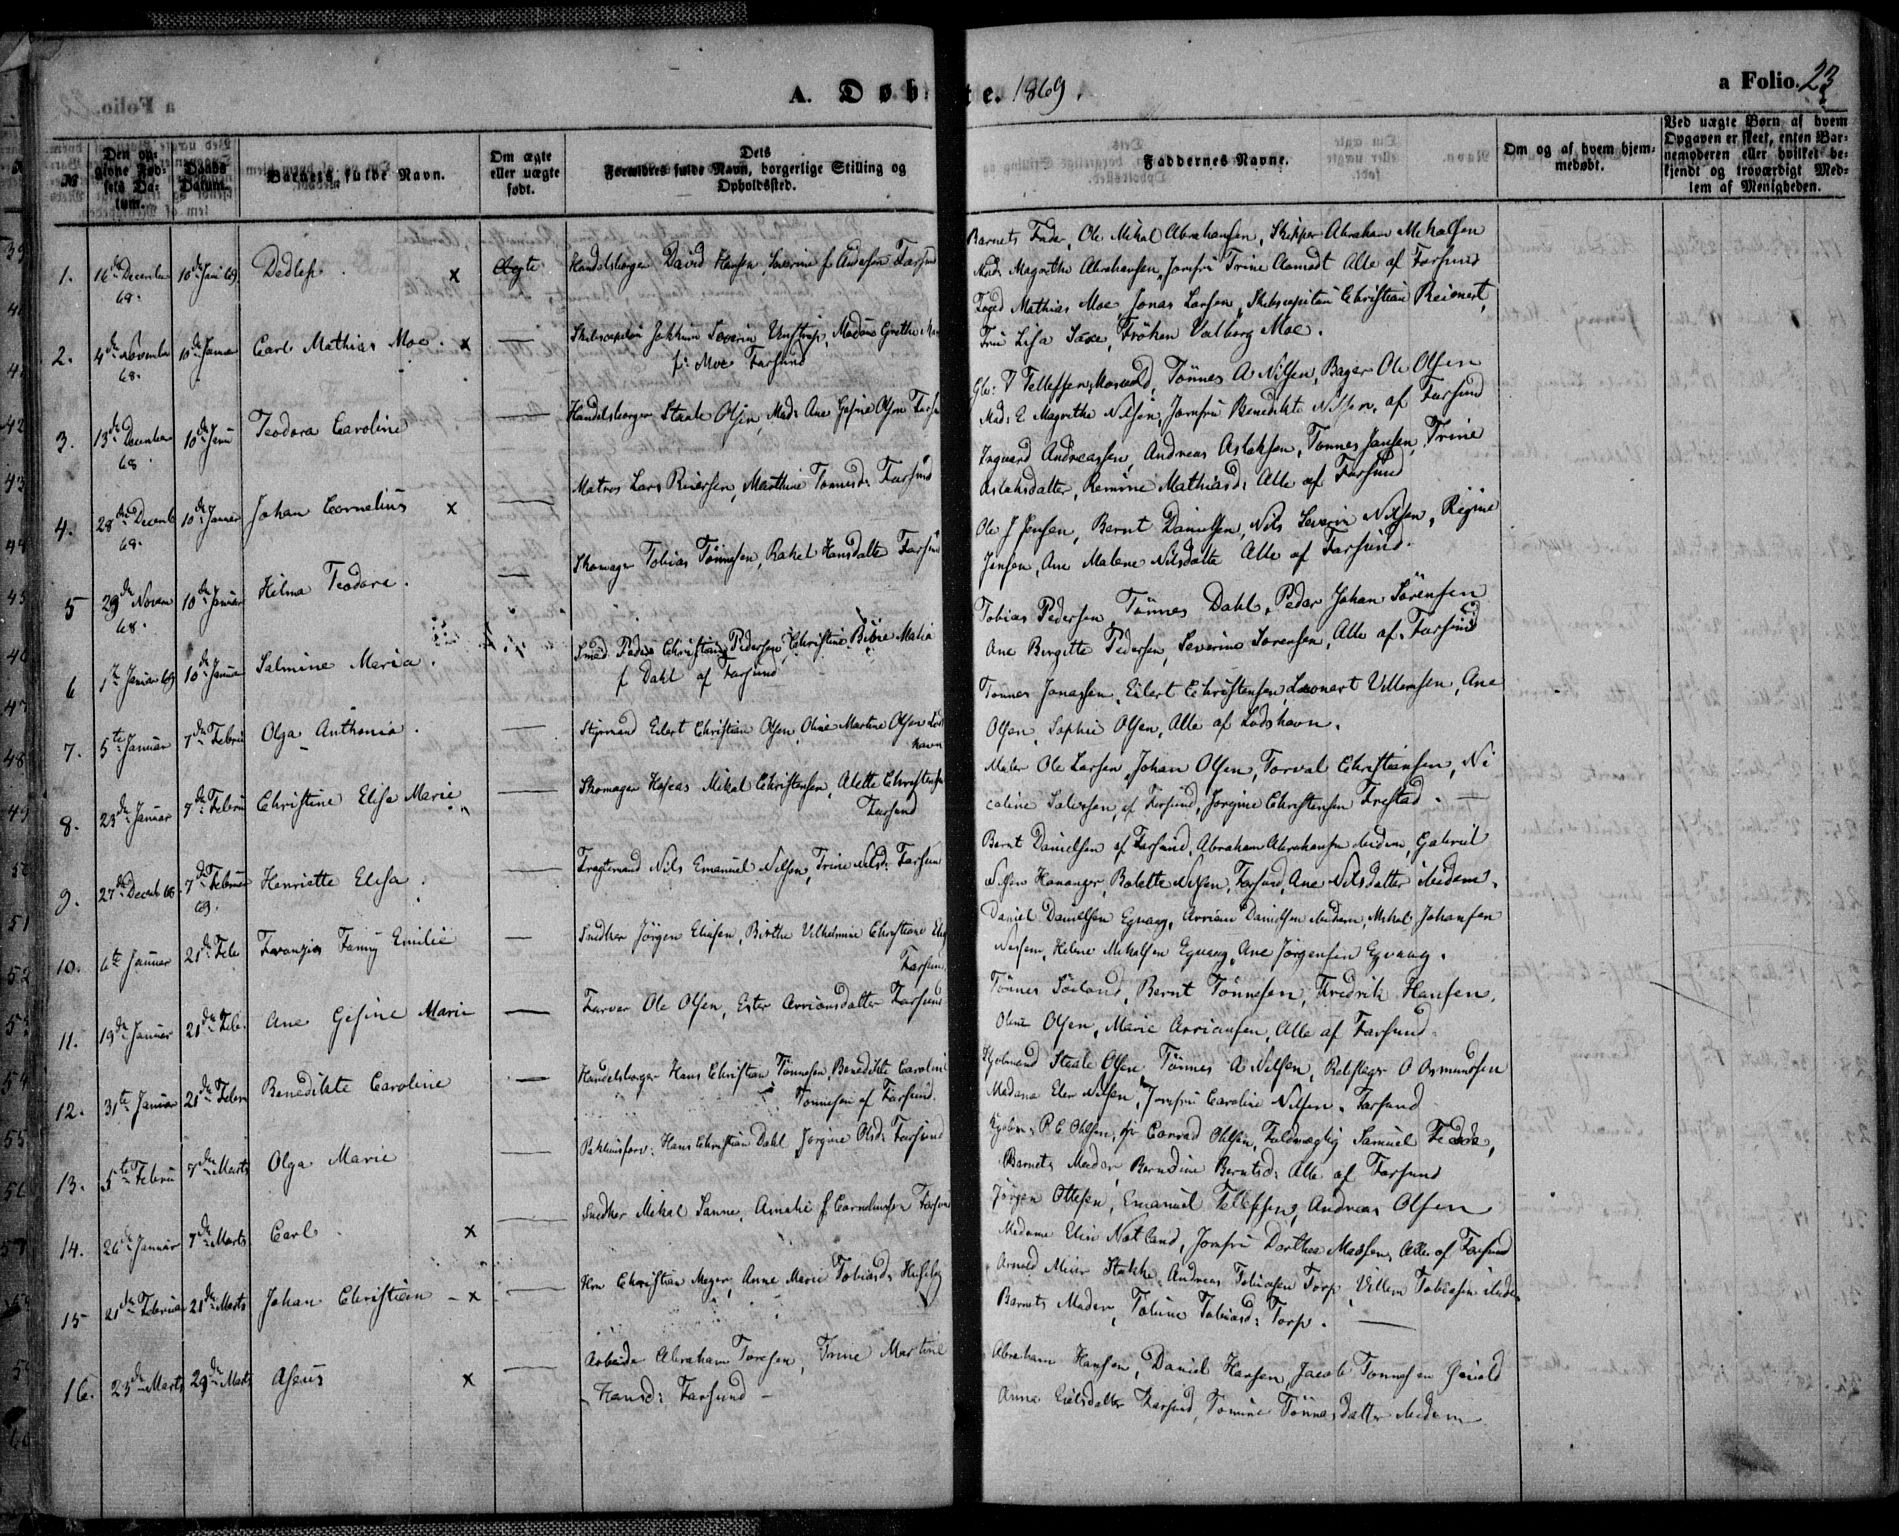 A. Døbte. 1869.
a Folio. 23
No
Den opgivne Fødsels Datum.
Daabs Datum.
Barnets fulde Navn.
Om ægte eller uægte født.
Dets
Forældres fulde Navn, borgerlige Stilling og
Opholdssted.
Faddernes Navne.
Om og af hvem hjemmedøbt.
Ved uægte Børn af hvem
Opgaven er skeet, enten Bar-
nemoderen eller hvilket be-
kjendt og troværdigt Med-
lem af Menigheden.
1. 16de December 68. 10de Jan 69 Dedlef. x Ægte Handelsborger David Hansen, Severine f. Andersen Farsund
Barnets Fader, Ole Mikal Abrahamsen, Skipper Abraham Mikalsen
Mad: Magrethe Abrahamsen, Jomfru Trine Aamodt Alle af Farsund
2. 4de November 68. 10de Januar Carl Mathias Moe. x — Skibscaptein Jokkum Severin Madame Grethe
f: Moe Farsund
Foged Mathias Moe, Jonas Larsen, Skibscapitain Christian Reienert,
Fru Lisa Saxe, Frøken Valborg Moe.
3. 13de December 68. 10de Janu Teodora Caroline — Handelsborger Staale Olsen, Mad: Ane Gesine Olsen Farsu
T Tellefsen, Tønnes A Nilsen, Bager Ole Olsen
Mad: E Magrethe Nilsen, Jomfru Benedikte Nilsen, af Farsund
4. 28de Decemb 68. 10de Januar Johan Cornelius x — Matros Lars Reiersen, Marthine Tønnesd: Farsund
Ingvard Andreassen, Andreas Aslaksen, Tønnes Jansen, Trine
Aslaksdatter, Remine Mathiasd: Alle af Farsund
5 29de Novem 68. 10de Januar Hilma Teodora. — Skomager Tobias Tønnesen, Rakel Hansdatte Farsund
Ole J Jensen, Bernt Danielsen, Nils Severin Nilsen, Regine
Jensen, Ane Malene Nilsdatte Alle af Farsund.
6 1te Januar 69 10de Januar Salmine Maria. Smed Peder Christian Pedersen, Christine Maria
f Dahl af Farsund
Tobias Pedersen, Tønnes Dahl, Peder Johan Sørensen
Ane Birgitte Pedersen, Severine Sørensen, Alle af Farsund
7. 5te Januar 7de Febru Olga Anthonia. — Styrmand Eilert Christian Olsen, Oline Martine Olsen Lods
havn
Tønnes Jonassen, Eilert Christensen, Leonart Villemsen, Ane
Olsen, Sophie Olsen, Alle af Lodshavn.
8. 23de Januar 7de Februa Christine Elise Marie — Skomager Hoseas Mikal Christensen, Alette Christensen
Farsund
Maler Ole Larsen, Johan Olsen, Torval Christiansen, Ni
coline Salvesen, af Farsund, Jorgine Christensen Frestad. —
9. 27de Decemb 68 7de Februar 69. Henriette Elisa. — Fragtemand Nils Emanuel Nilsen, Trine Nilsd: Farsun
Bernt Danielsen af Farsund, Abraham Abrahamsen ibidem, Gabriel
Nilsen Hananger, Bolette Nilsen, Farsund, Ane Nilsdatter ibidem.
10. 6te Januar 21de Feb Franzis Fanny Emilie — Snedker Jørgen Eliasen, Birthe Vilhelmine Christiane
Farsund
Daniel Danielsen Egvaag, Arriane Danielsen ibidem, Mikal Johansen
Helene Mikalsen Egvaag, Ane Jørgensen Egvaag.
11. 19de Januar 21de Feb. Ane Gesine Marie — Farver Ole Olsen, Ester Arriansdatter Farsund
Tønnes Bernt Tønnesen, Fredrik Hansen,
Oline Olsen, Marie Arriansen, Alle af Farsund.
12. 31te Januar 21de Febru Benedikte Caroline — Handelsborger Hans Christian Tønnesen, Benedikte Caroline
Tønnesen af Farsund.
Staale Olsen, Tønnes A Nilsen, Rebslager O Asmundsen
Madame Elen Nilsen, Jomfru Caroline Nilsen. Farsund
13. 5te Februa 7de Marts Olga Marie — Pakhusforv: Hans Christian Dahl, Jorgine Olsd: Farsund
P. C Ohlsen, Conrad Ohlsen, Fuldmægtig Samuel Fedde,
Barnets Moder, Berndine Berntsd: Alle af Farsund
14. 26de Januar 7de Marts Carl. x — Snedker Mikal Sanne, Amalie f Corneliussen Farsun
Jørgen Ottesen, Emanuel Tellefsen, Andreas Olsen
Madame Elin Natland, Jomfru Dorthea Madsen, Alle af Farsund
15 21de Februar 21de Marts Johan Christian – x — Christian Meyer, Anne Marie Tobiasd: Huseby
Arnold Meier Stakke, Andreas Tobiasen Torp, Villem Tobiasen ibidem
Barnets Moder, Tobine Tobiasd: Torp. —
16. 23de Marts 29de Marts Aseus x — Arbeide Abraham Toresen, Trine Martine
Hansd: Farsund –
Abraham Hansen, Daniel Hansen, Jacob Tønnesen
Anna Farsund, Tomine Tønnesdatter ibidem